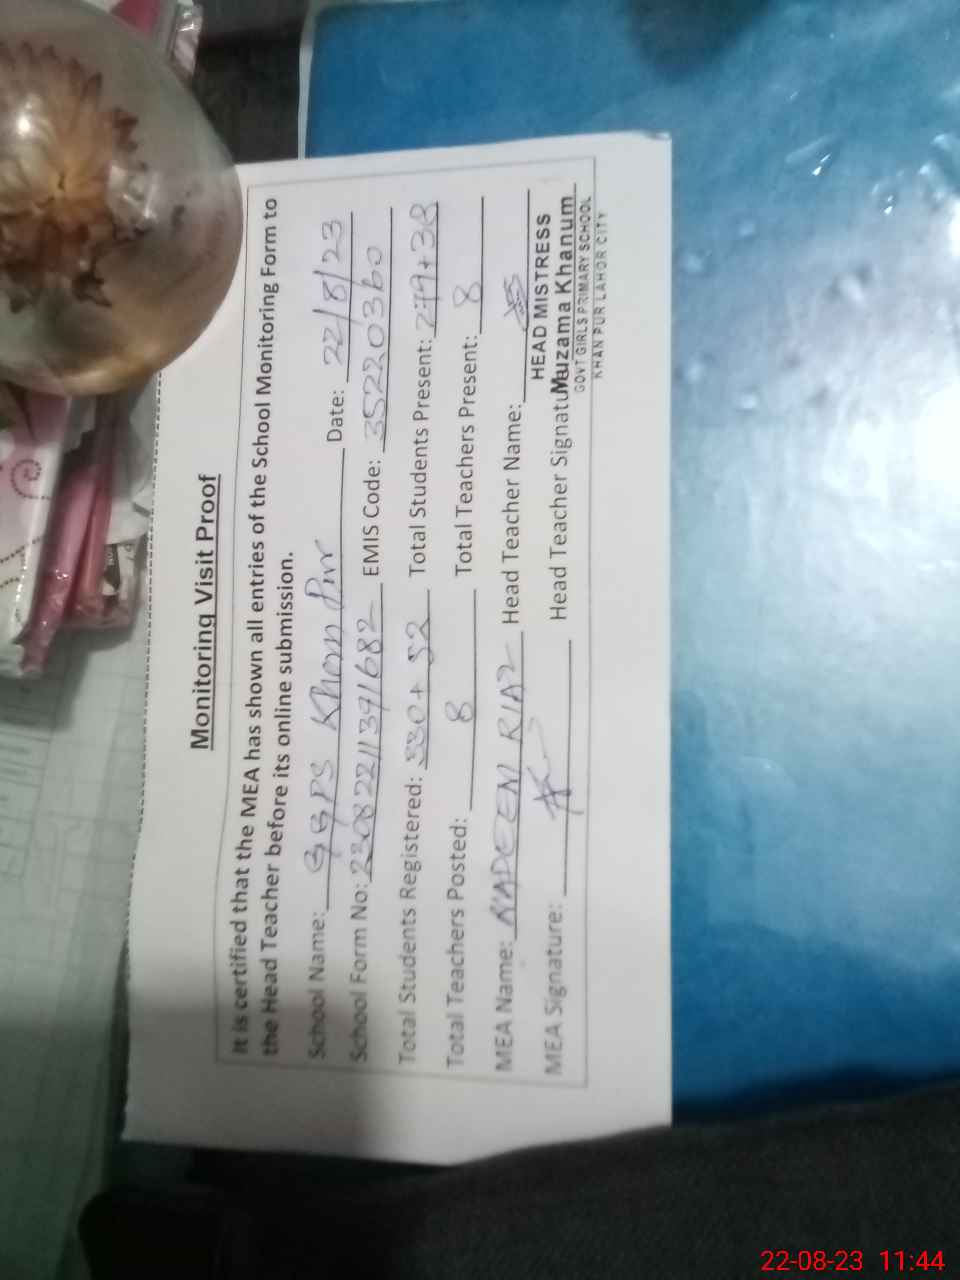 Monitoring Visit Proof
It is certified that the MEA has shown all entries of the School Monitoring Form to
the Head Teacher before its online submission.
School Name: GGPS Khan Pur Date: 22/8/23
School Form No: 23082211391682 EMIS Code: 35220360
Total Students Registered: 330+52 Total Students Present: 279+38
Total Teachers Posted: 8 Total Teachers Present: 8
MEA Name: NADEEM RIAZ Head Teacher Name:
MEA Signature: Head Teacher Signatu
HEAD MISTRESS
Muzama Khanum
GOVT GIRLS PRIMARY SCHOOL
KHAN PUR LAHOR CITY
22-08-23 11:44